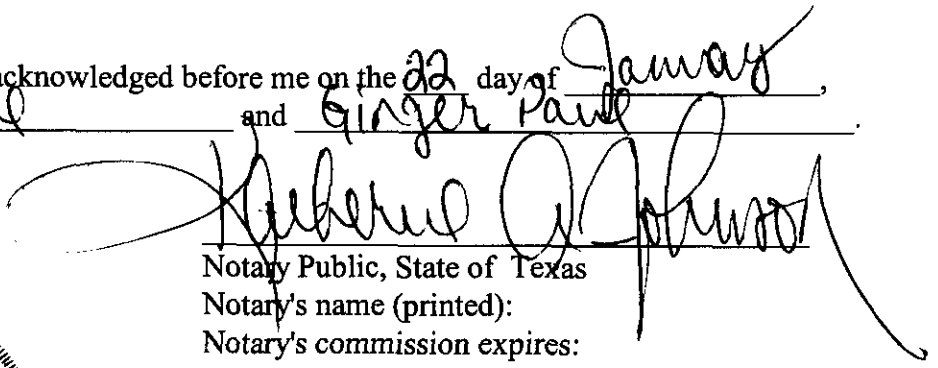 acknowledged before me on the 22 day of January,
and Ginger Paul.
Johnson
Notary Public, State of Texas
Notary's name (printed):
Notary's commission expires: